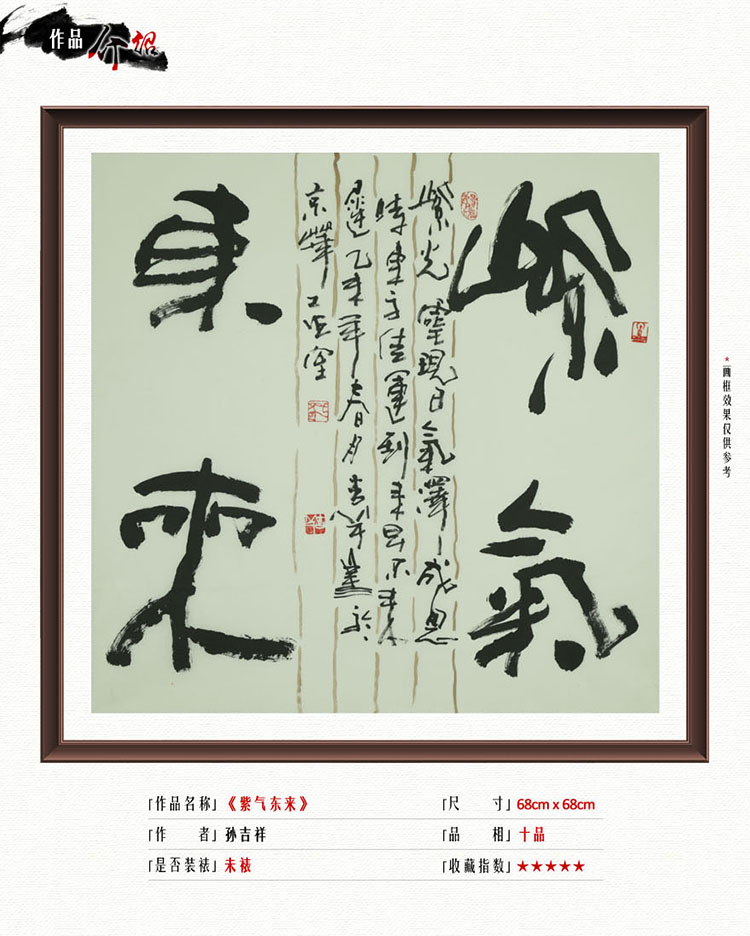 作品介绍
紫氣
東來
紫光靈現日氣澤成恩
時東方佳運到來早不來
遲乙未年春月吉祥書於
京華
*画框效果仅供参考
「作品名称」《紫气东来》 「尺 寸」68cm x 68cm
「作 者」孙吉祥 「品 相」十品
「是否装裱」未裱 「收藏指数」★★★★★